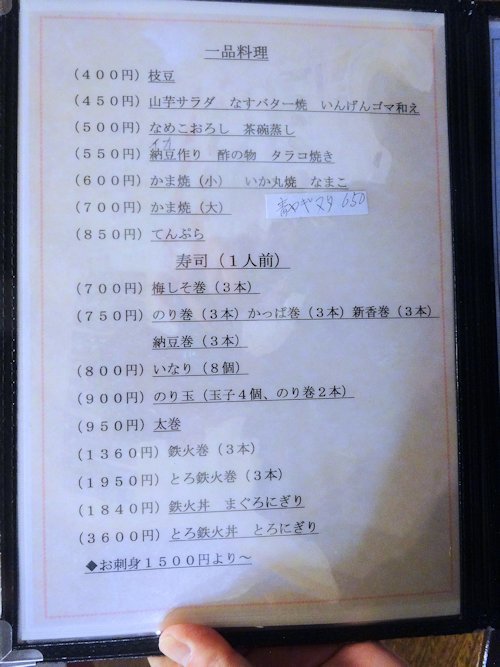 一品料理
（４００円）枝豆
（４５０円）山芋サラダ　なすバター焼　いんげんゴマ和え
（５００円）なめこおろし　茶碗蒸し
イカ
（５５０円）納豆作り　酢の物　タラコ焼き
（６００円）かま焼（小）　いか丸焼　なまこ
（７００円）かま焼（大）
ヤギマタ 650
（８５０円）てんぷら
寿司（１人前）
（７００円）梅しそ巻（３本）
（７５０円）のり巻（３本）かっぱ巻（３本）新香巻（３本）
納豆巻（３本）
（８００円）いなり（８個）
（９００円）のり玉（玉子４個、のり巻２本）
（９５０円）太巻
（１３６０円）鉄火巻（３本）
（１９５０円）とろ鉄火巻（３本）
（１８４０円）鉄火丼　まぐろにぎり
（３６００円）とろ鉄火丼　とろにぎり
◆お刺身１５００円より～